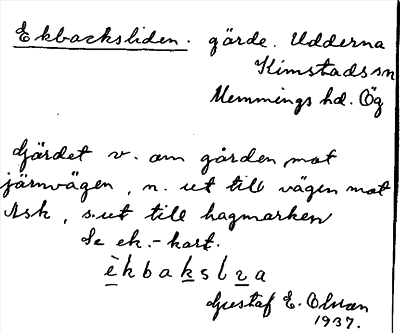 Ekbacksliden. gärde. Udderna
Kimstads sn
Memmings hd. Ög
Gärdet v. om gården mot
järnvägen, n. ut till vägen mot
Ask, s. ut till hagmarken
Se ek.-kart.
èkbakslɩa
Gustaf E. Olsson
1937.